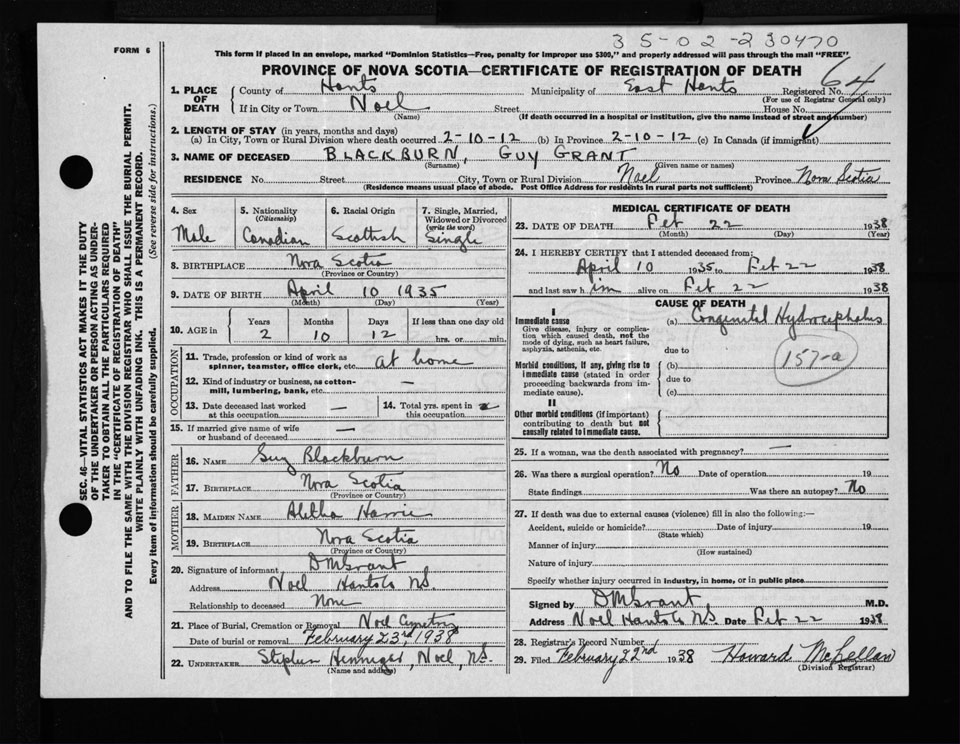 35-02-230470
FORM 6
This form if placed in an envelope, marked "Dominion Statistics—Free, penalty for improper use $300," and properly addressed will pass through the mail "FREE"
PROVINCE OF NOVA SCOTIA—CERTIFICATE OF REGISTRATION OF DEATH
1. PLACE OF DEATH County of Hants Municipality of East Hants Registered No. 64
(For use of Registrar General only)
If in City or Town Noel Street House No.
(Name) (If death occurred in a hospital or institution, give the name instead of street and number)
2. LENGTH OF STAY (in years, months and days)
(a) In City, Town or Rural Division where death occurred 2-10-12 (b) In Province 2-10-12 (c) In Canada (if immigrant)
3. NAME OF DECEASED BLACKBURN, GUY GRANT
(Surname) (Given name or names)
RESIDENCE No. Street City, Town or Rural Division Noel Province Nova Scotia
(Residence means usual place of abode. Post Office Address for residents in rural parts not sufficient)
4. Sex Male
5. Nationality (Citizenship) Canadian
6. Racial Origin Scottish
7. Single, Married, Widowed or Divorced (write the word) Single
8. BIRTHPLACE Nova Scotia
(Province or Country)
9. DATE OF BIRTH April 10 1935
(Month) (Day) (Year)
10. AGE in Years Months Days If less than one day old
2 10 12 hrs. or min.
OCCUPATION
11. Trade, profession or kind of work as spinner, teamster, office clerk, etc. at home
12. Kind of industry or business, as cotton-mill, lumbering, bank, etc. —
13. Date deceased last worked at this occupation —
14. Total yrs. spent in this occupation
15. If married give name of wife or husband of deceased —
FATHER
16. NAME Guy Blackburn
17. BIRTHPLACE Nova Scotia
(Province or Country)
MOTHER
18. MAIDEN NAME
19. BIRTHPLACE Nova Scotia
(Province or Country)
20. Signature of informant DMGrant
Address Noel Hants Co NS.
Relationship to deceased None
21. Place of Burial, Cremation or Removal Noel Cemetry
Date of burial or removal February 23rd, 1938
22. UNDERTAKER Stephen Henniger, Noel, N.S.
(Name and address)
MEDICAL CERTIFICATE OF DEATH
23. DATE OF DEATH Feb 22 1938
(Month) (Day) (Year)
24. I HEREBY CERTIFY that I attended deceased from:
April 10 1935 to Feb 22 1938
and last saw him alive on Feb 22 1938
CAUSE OF DEATH
I
Immediate cause
Give disease, injury or complication which caused death, not the mode of dying, such as heart failure, asphyxia, asthenia, etc.
(a) Congenital Hydrocephalus
due to
157-a
Morbid conditions, if any, giving rise to immediate cause (stated in order proceeding backwards from immediate cause).
(b)
due to
(c)
II
Other morbid conditions (if important) contributing to death but not causally related to immediate cause.
25. If a woman, was the death associated with pregnancy? —
26. Was there a surgical operation? No Date of operation 19
State findings Was there an autopsy? No
27. If death was due to external causes (violence) fill in also the following:—
Accident, suicide or homicide? Date of injury 19
(State which)
Manner of injury
(How sustained)
Nature of injury
Specify whether injury occurred in industry, in home, or in public place
Signed by DMGrant M.D.
Address Noel Hants Co NS. Date Feb 22 1938
28. Registrar's Record Number
29. Filed February 22nd 1938 Howard McLellan
(Division Registrar)
SEC. 46—VITAL STATISTICS ACT MAKES IT THE DUTY
OF THE UNDERTAKER OR PERSON ACTING AS UNDER-
TAKER TO OBTAIN ALL THE PARTICULARS REQUIRED
IN THE "CERTIFICATE OF REGISTRATION OF DEATH"
AND TO FILE THE SAME WITH THE DIVISION REGISTRAR WHO SHALL ISSUE THE BURIAL PERMIT.
WRITE PLAINLY WITH UNFADING INK. THIS IS A PERMANENT RECORD.
Every item of information should be carefully supplied. (See reverse side for instructions.)